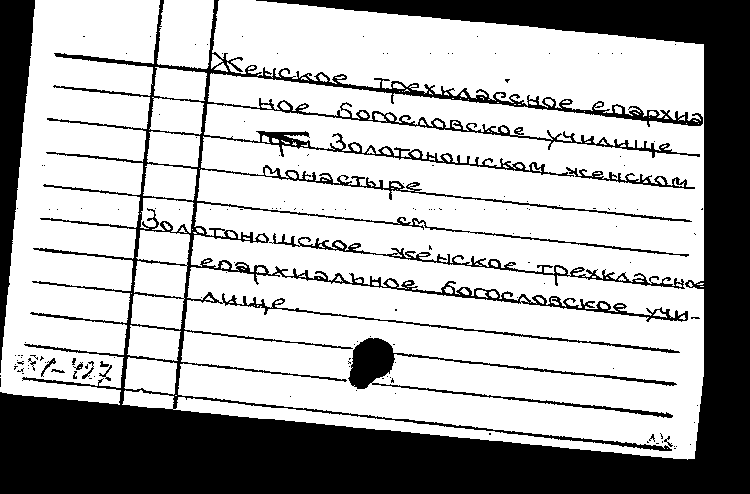 Женское трехклассное епархиа
ное богословское училище
при Золотоношском женском
монастыре
см.
Золотоношское женское трехклассное
епархиальное богословское учи-
лище.